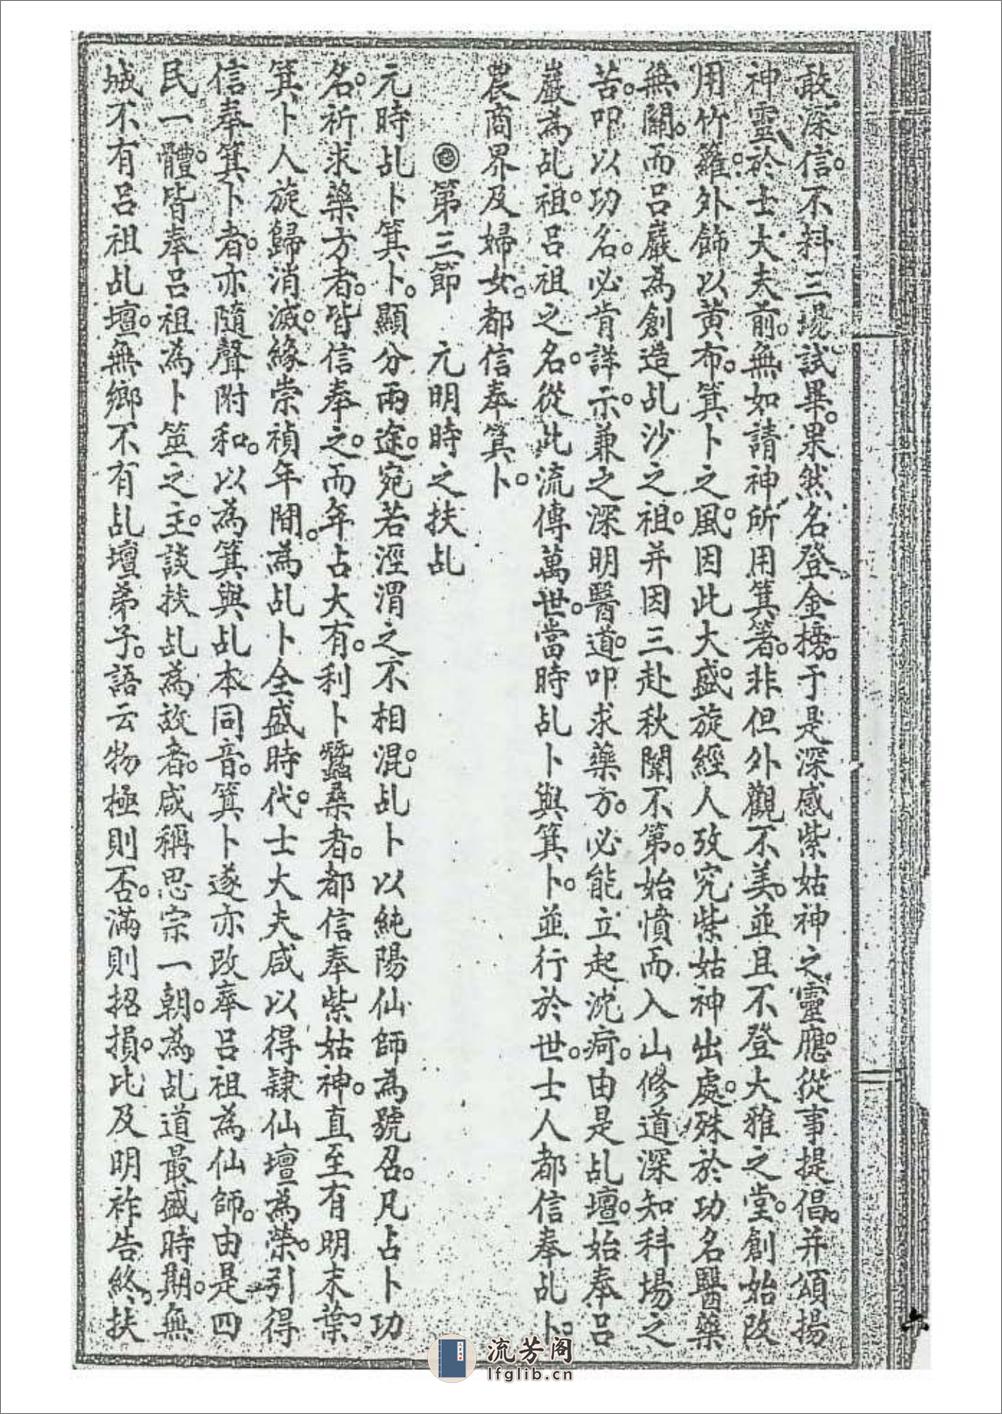 敢深信。不料三場試畢。果然名登金榜。于是深感紫姑神之靈應。從事提倡。并頌揚
神靈。於士大夫前。無如請神所用箕箸。非但外觀不美。並且不登大雅之堂。創始改
用竹籮。外飾以黃布。箕卜之風。因此大盛。旋經人攷究紫姑神出處。殊於功名醫藥
無關。而呂巖為創造乩沙之祖。并因三赴秋闈不第。始憤而入山修道。深知科場之
苦。叩以功名。必肯詳示。兼之深明醫道。叩求藥方。必能立起沈疴。由是乩壇。始奉呂
巖為乩祖。呂祖之名。從此流傳萬世。當時乩卜與箕卜。並行於世。士人都信奉乩卜。
農商界及婦女。都信奉箕卜。
第三節　元明時之扶乩
元時乩卜箕卜。顯分兩途。宛若涇渭之不相混。乩卜以純陽仙師為號召。凡占卜功
名。祈求藥方者。皆信奉之。而年占大有。利卜蠶桑者。都信奉紫姑神。直至有明末葉。
箕卜人旋歸消滅。緣崇禎年間。為乩卜全盛時代。士大夫咸以得隸仙壇為榮。引得
信奉箕卜者。亦隨聲附和。以為箕與乩本同音。箕卜遂亦改奉呂祖為仙師。由是四
民一體。皆奉呂祖為卜筮之主。談扶乩為故者。咸稱思宗一朝。為乩道最盛時期。無
城不有呂祖乩壇。無鄉不有乩壇弟子。語云物極則否。滿則招損。比及明祚告終。扶
六
流芳阁
lfglib.cn